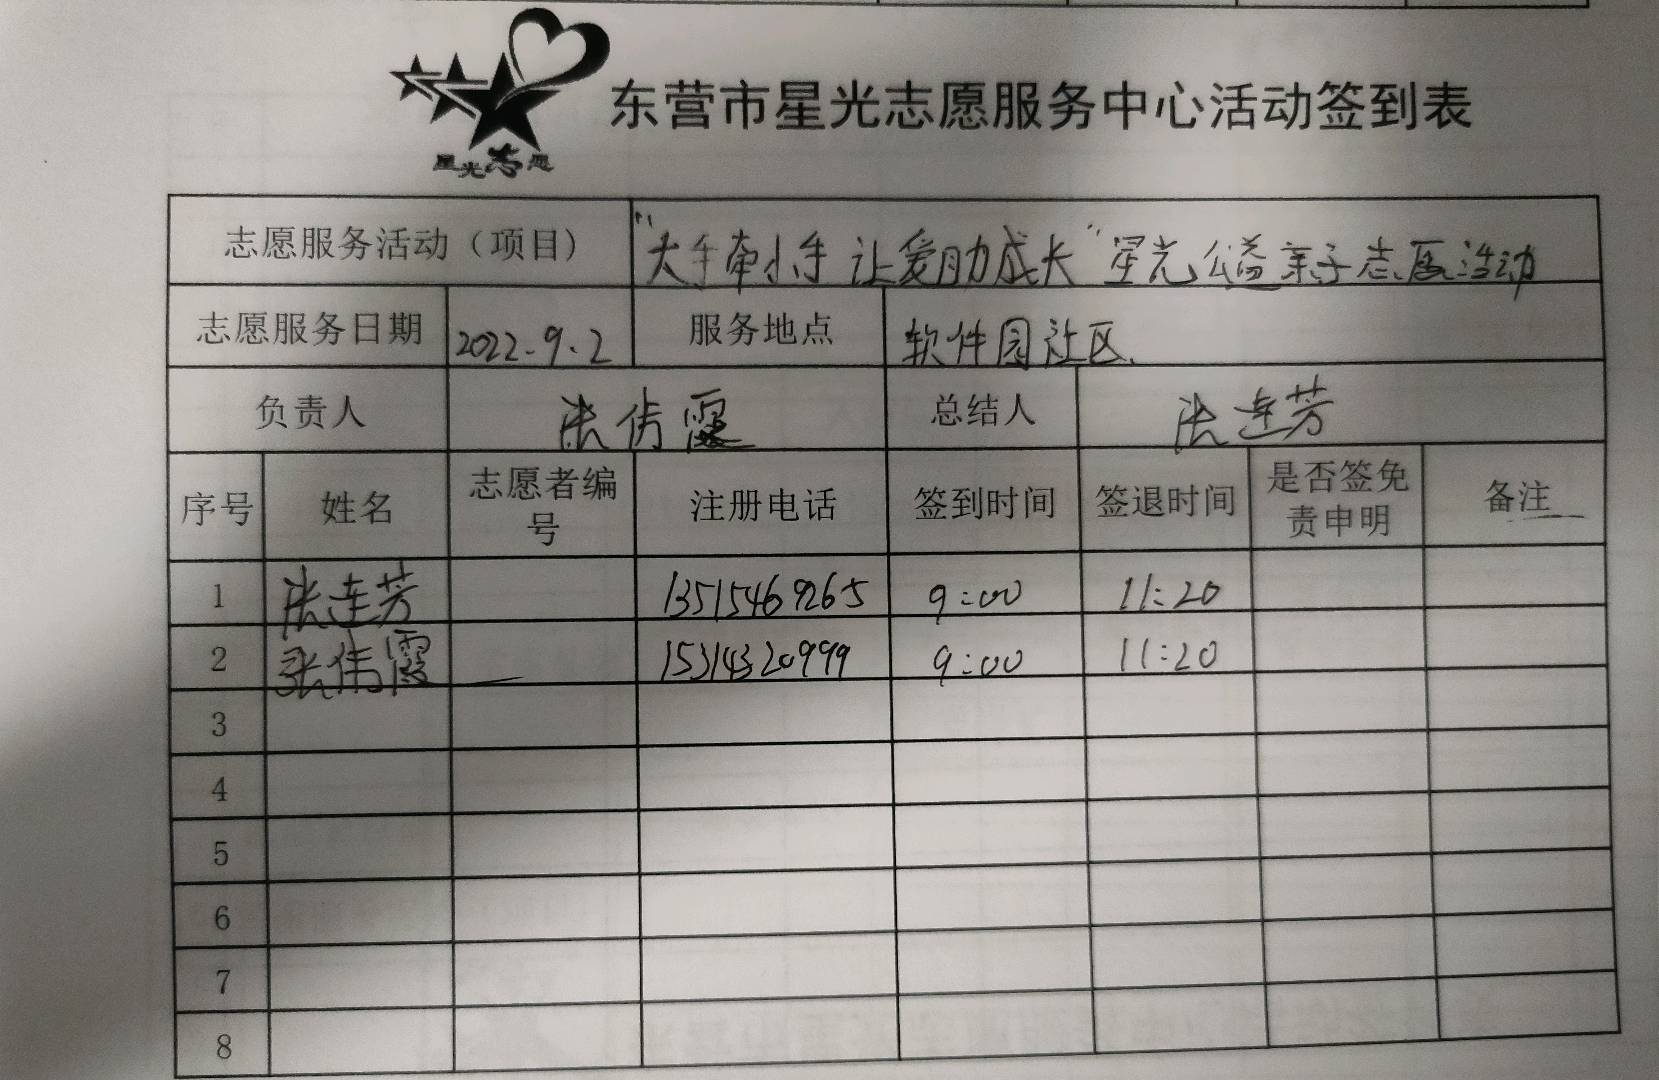 星光志愿
东营市星光志愿服务中心活动签到表
志愿服务活动（项目） "大手牵小手 让爱助成长"星光公益亲子志愿活动
志愿服务日期 2022.9.2 服务地点 软件园社区
负责人 张倩霞 总结人 张连芳
序号 姓名 志愿者编号 注册电话 签到时间 签退时间 是否签免责申明 备注
1 张连芳 13515469265 9:00 11:20
2 张倩霞 — 15314320999 9:00 11:20
3
4
5
6
7
8